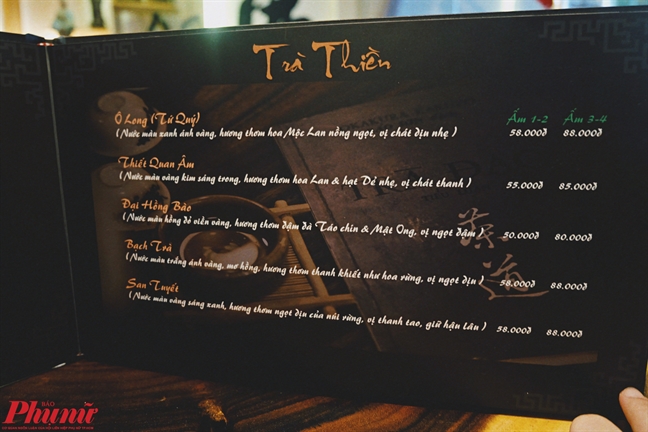 Trà Thiền
Ô Long (Tứ Quý) Ấm 1-2 Ấm 3-4
(Nước màu xanh ánh vàng, hương thơm hoa Mộc Lan nồng ngọt, vị chát dịu nhẹ) 58.000đ 88.000đ
Thiết Quan Âm
(Nước màu vàng kim sáng trong, hương thơm hoa Lan & hạt Dẻ nhẹ, vị chát thanh) 55.000đ 85.000đ
Đại Hồng Bào
(Nước màu hồng đỏ viền vàng, hương thơm đậm đà Táo chín & Mật Ong, vị ngọt đậm) 50.000đ 80.000đ
Bạch Trà
(Nước màu trắng ánh vàng, mơ hồng, hương thơm thanh khiết như hoa rừng, vị ngọt dịu) 58.000đ 88.000đ
San Tuyết
(Nước màu vàng sáng xanh, hương thơm ngọt dịu của núi rừng, vị thanh tao, giữ hậu lâu) 58.000đ 88.000đ
茶道
BÁO
Phụ nữ